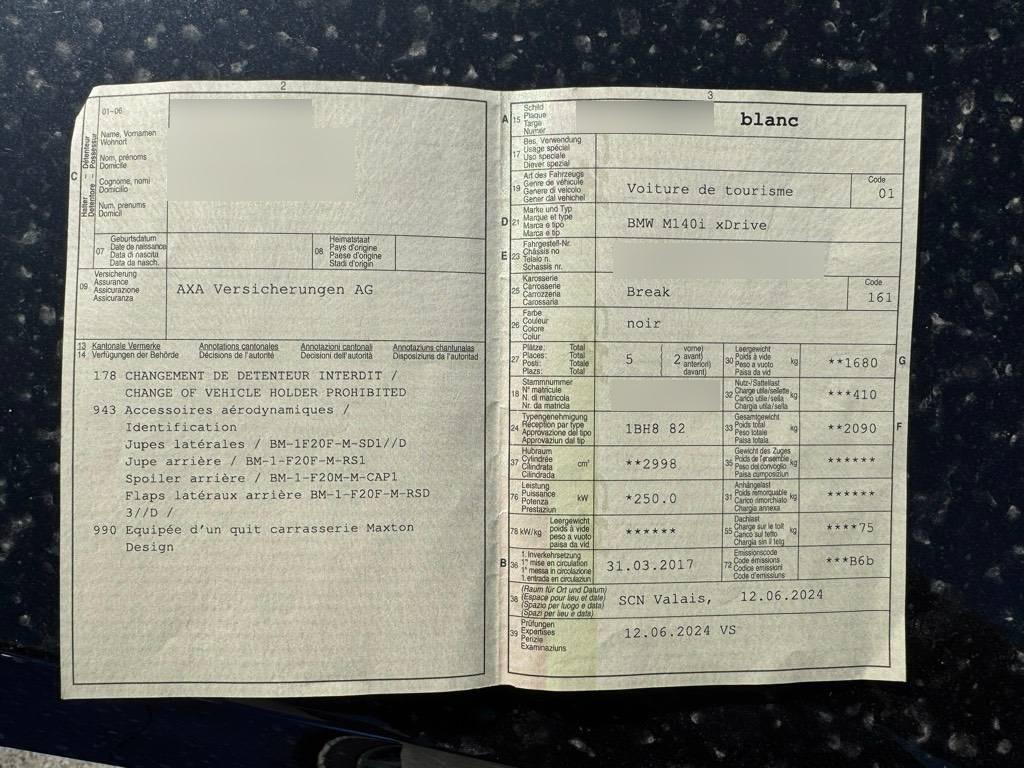 2
01-06
C
Halter - Détenteur
Detentore - Possessur
Name, Vornamen
Wohnort
Nom, prénoms
Domicile
Cognome, nomi
Domicilio
Num, prenums
Domicil
07
Geburtsdatum
Date de naissance
Data di nascita
Data da nasch.
08
Heimatstaat
Pays d'origine
Paese d'origine
Stadi d'origin
09
Versicherung
Assurance
Assicurazione
Assicuranza
AXA Versicherungen AG
13 Kantonale Vermerke Annotations cantonales Annotazioni cantonali Annotaziuns chantunalas
14 Verfügungen der Behörde Décisions de l'autorité Decisioni dell'autorità Disposiziuns da l'autoritad
178 CHANGEMENT DE DETENTEUR INTERDIT /
CHANGE OF VEHICLE HOLDER PROHIBITED
943 Accessoires aérodynamiques /
Identification
Jupes latérales / BM-1F20F-M-SD1//D
Jupe arrière / BM-1-F20F-M-RS1
Spoiler arrière / BM-1-F20M-M-CAP1
Flaps latéraux arrière BM-1-F20F-M-RSD
3//D /
990 Equipée d'un quit carrasserie Maxton
Design
3
A 15
Schild
Plaque
Targa
Numer
blanc
17
Bes. Verwendung
Usage spécial
Uso speciale
Diever spezial
19
Art des Fahrzeugs
Genre de véhicule
Genere di veicolo
Gener dal vehichel
Voiture de tourisme
Code
01
D 21
Marke und Typ
Marque et type
Marca e tipo
Marca e tip
BMW M140i xDrive
E 23
Fahrgestell-Nr.
Châssis no
Telaio n.
Schassis nr.
25
Karosserie
Carrosserie
Carrozzeria
Carossaria
Break
Code
161
26
Farbe
Couleur
Colore
Colur
noir
27
Plätze: Total
Places: Total
Posti: Totale
Plazs: Total
5
2
vorne)
avant)
anteriori)
davant)
30
Leergewicht
Poids à vide
Peso a vuoto
Paisa da vid
kg
**1680
G
18
Stammnummer
N° matricule
N. di matricola
Nr. da matricla
32
Nutz-/Sattellast
Charge utile/sellette
Carico utile/sella
Chargia utila/sella
kg
***410
24
Typengenehmigung
Réception par type
Approvazione del tipo
Approvaziun dal tip
1BH8 82
33
Gesamtgewicht
Poids total
Peso totale
Paisa totala
kg
**2090
F
37
Hubraum
Cylindrée
Cilindrata
Cilindrada
cm³
**2998
35
Gewicht des Zuges
Poids de l'ensemble
Peso del convoglio
Paisa cumposiziun
kg
******
76
Leistung
Puissance
Potenza
Prestaziun
kW
*250.0
31
Anhängelast
Poids remorquable
Carico rimorchiato
Chargia annexa
kg
******
78 kW/kg
Leergewicht
poids à vide
peso a vuoto
paisa da vid
******
55
Dachlast
Charge sur le toit
Carico sul tetto
Chargia sin il tetg
kg
****75
B 36
1. Inverkehrsetzung
1re mise en circulation
1a messa in circolazione
1. entrada en circulaziun
31.03.2017
72
Emissionscode
Code émissions
Codice emissioni
Code d'emissiuns
***B6b
38
(Raum für Ort und Datum)
(Espace pour lieu et date)
(Spazio per luogo e data)
(Spazi per lieu e data)
SCN Valais, 12.06.2024
39
Prüfungen
Expertises
Perizie
Examinaziuns
12.06.2024 VS